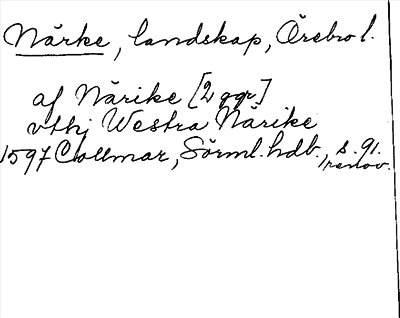 Närke, landskap, Örebro l.
af Närike [2 ggr]
vthj Westra Närike
1597 Collmar, Sörml. hdb., s. 91.
renov.